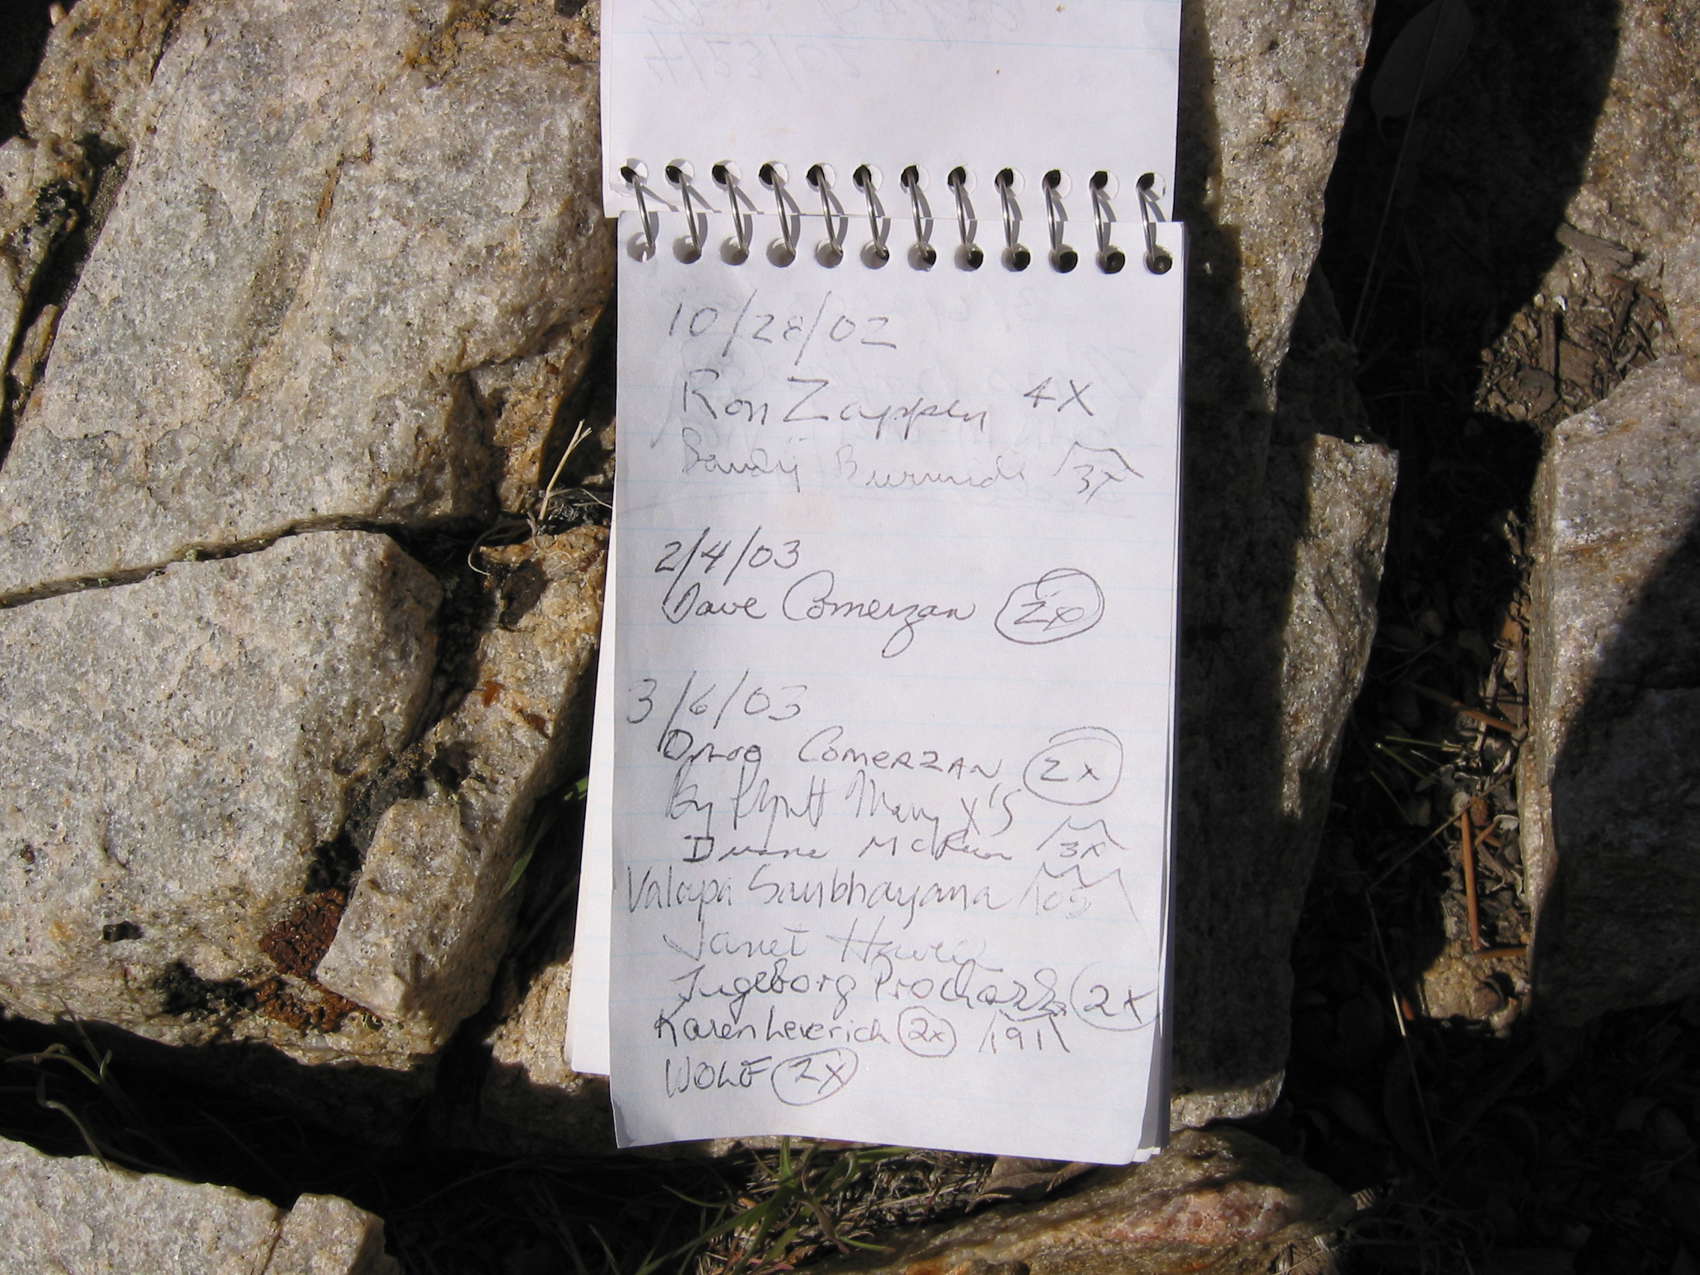 10/28/02
Ron Zappen 4X
Sandy 3X
2/4/03
Dave Comerzan 2x
3/6/03
Doug Comerzan 2x
Many X'S
Duane McRuer 3x
Valapa Sanbhayana 103
Janet
Ingeborg Prochazka 2X
Karen Leverich 2x 191
WOLF 2X